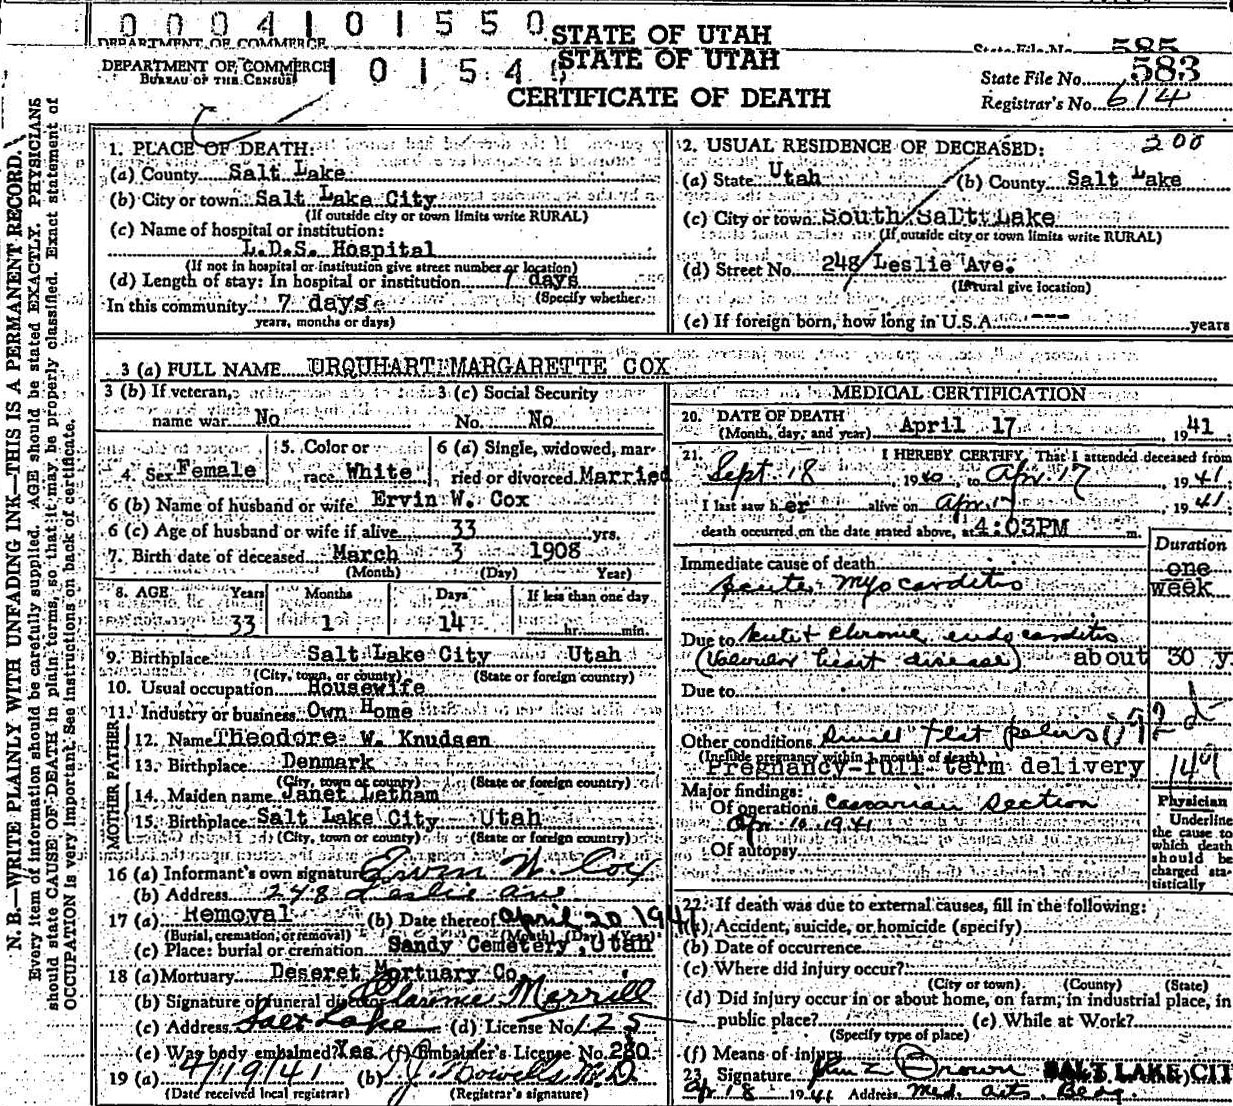 0004101550
STATE OF UTAH
DEPARTMENT OF COMMERCE
State File No. 585
DEPARTMENT OF COMMERCE
BUREAU OF THE CENSUS
101546
STATE OF UTAH
CERTIFICATE OF DEATH
State File No. 583
Registrar's No. 614
N. B.—WRITE PLAINLY WITH UNFADING INK—THIS IS A PERMANENT RECORD.
Every item of information should be carefully supplied. AGE should be stated EXACTLY. PHYSICIANS
should state CAUSE OF DEATH in plain terms, so that it may be properly classified. Exact statement of
OCCUPATION is very important. See instructions on back of certificate.
1. PLACE OF DEATH:
(a) County Salt Lake
(b) City or town Salt Lake City
(If outside city or town limits write RURAL)
(c) Name of hospital or institution:
L.D.S. Hospital
(If not in hospital or institution give street number or location)
(d) Length of stay: In hospital or institution 7 days
(Specify whether
In this community 7 days
years, months or days)
2. USUAL RESIDENCE OF DECEASED: 200
(a) State Utah (b) County Salt Lake
(c) City or town South Salt Lake
(If outside city or town limits write RURAL)
(d) Street No. 248 Leslie Ave.
(If rural give location)
(e) If foreign born, how long in U.S.A. --- years
3 (a) FULL NAME URQUHART MARGARETTE COX
3 (b) If veteran, name war No
3 (c) Social Security No. No
4. Sex Female
5. Color or race White
6 (a) Single, widowed, married or divorced Married
6 (b) Name of husband or wife Ervin W. Cox
6 (c) Age of husband or wife if alive 33 yrs.
7. Birth date of deceased March 3 1908
(Month) (Day) Year)
8. AGE Years Months Days If less than one day
33 1 14 hr. min.
9. Birthplace Salt Lake City Utah
(City, town, or county) (State or foreign country)
10. Usual occupation Housewife
11. Industry or business Own Home
FATHER
12. Name Theodore W. Knudsen
13. Birthplace Denmark
(City, town or county) (State or foreign country)
MOTHER
14. Maiden name Janet Letham
15. Birthplace Salt Lake City Utah
(City, town or county) (State or foreign country)
16 (a) Informant's own signature Ervin W. Cox
(b) Address 248 Leslie Ave
17 (a) Removal (b) Date thereof April 20 1941
(Burial, cremation, or removal) (Month) (Day) (Year)
(c) Place: burial or cremation Sandy Cemetery, Utah
18 (a) Mortuary Deseret Mortuary Co.
(b) Signature of funeral director Clarence Merrill
(c) Address Salt Lake (d) License No. 125
(e) Was body embalmed? Yes (f) Embalmer's License No. 280
19 (a) 4/19/41 (b) Howells M.D.
(Date received local registrar) (Registrar's signature)
MEDICAL CERTIFICATION
20. DATE OF DEATH
(Month, day, and year) April 17, 1941
21. I HEREBY CERTIFY, That I attended deceased from
Sept. 18, 1940, to Apr. 17, 1941
I last saw her alive on Apr. 17, 1941
death occurred on the date stated above, at 4:03PM m.
Duration
Immediate cause of death one
Acute myocarditis week
Due to Acute & chronic endocarditis
(Valvular heart disease) about 30 y.
Due to
Other conditions Small flat pelvis
(Include pregnancy within 3 months of death)
Pregnancy-full-term delivery 149
Major findings:
Of operations Cesarian Section
Apr 10 1941
Of autopsy
Physician
Underline
the cause to
which death
should be
charged sta-
tistically
22. If death was due to external causes, fill in the following:
(a) Accident, suicide, or homicide (specify)
(b) Date of occurrence
(c) Where did injury occur?
(City or town) (County) (State)
(d) Did injury occur in or about home, on farm, in industrial place, in
public place? (e) While at Work?
(Specify type of place)
(f) Means of injury
23. Signature John Z Brown SALT LAKE CIT
Apr 18 1941 Address Med. Arts. Bldg.